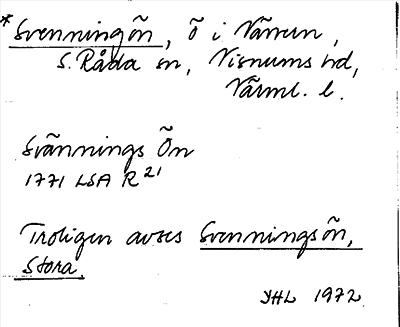 *Svenningön, ö i Vänern,
S. Råda sn, Visnums hd,
Värml. l.
Svännings Ön
1771 LSA R 21
Troligen avses Svenningsön,
Stora.
JHL 1972